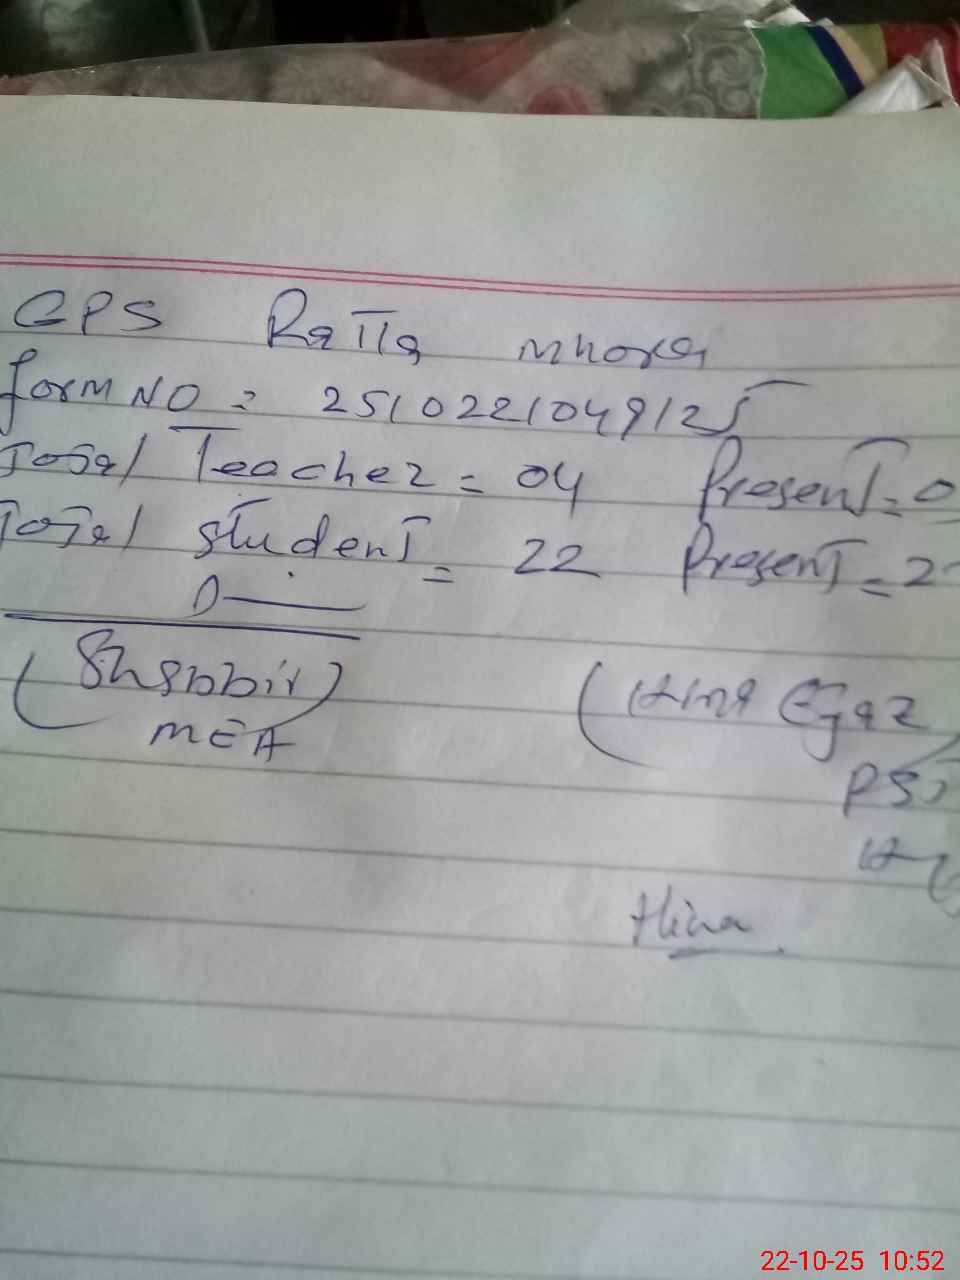 GPS Ratta mhora
form NO = 2510221049125
Total Teacher = 04 Present = 0
Total student = 22 Present = 2
(Shabbir)
MEA
(Hina Ejaz
PST
Hina
22-10-25 10:52